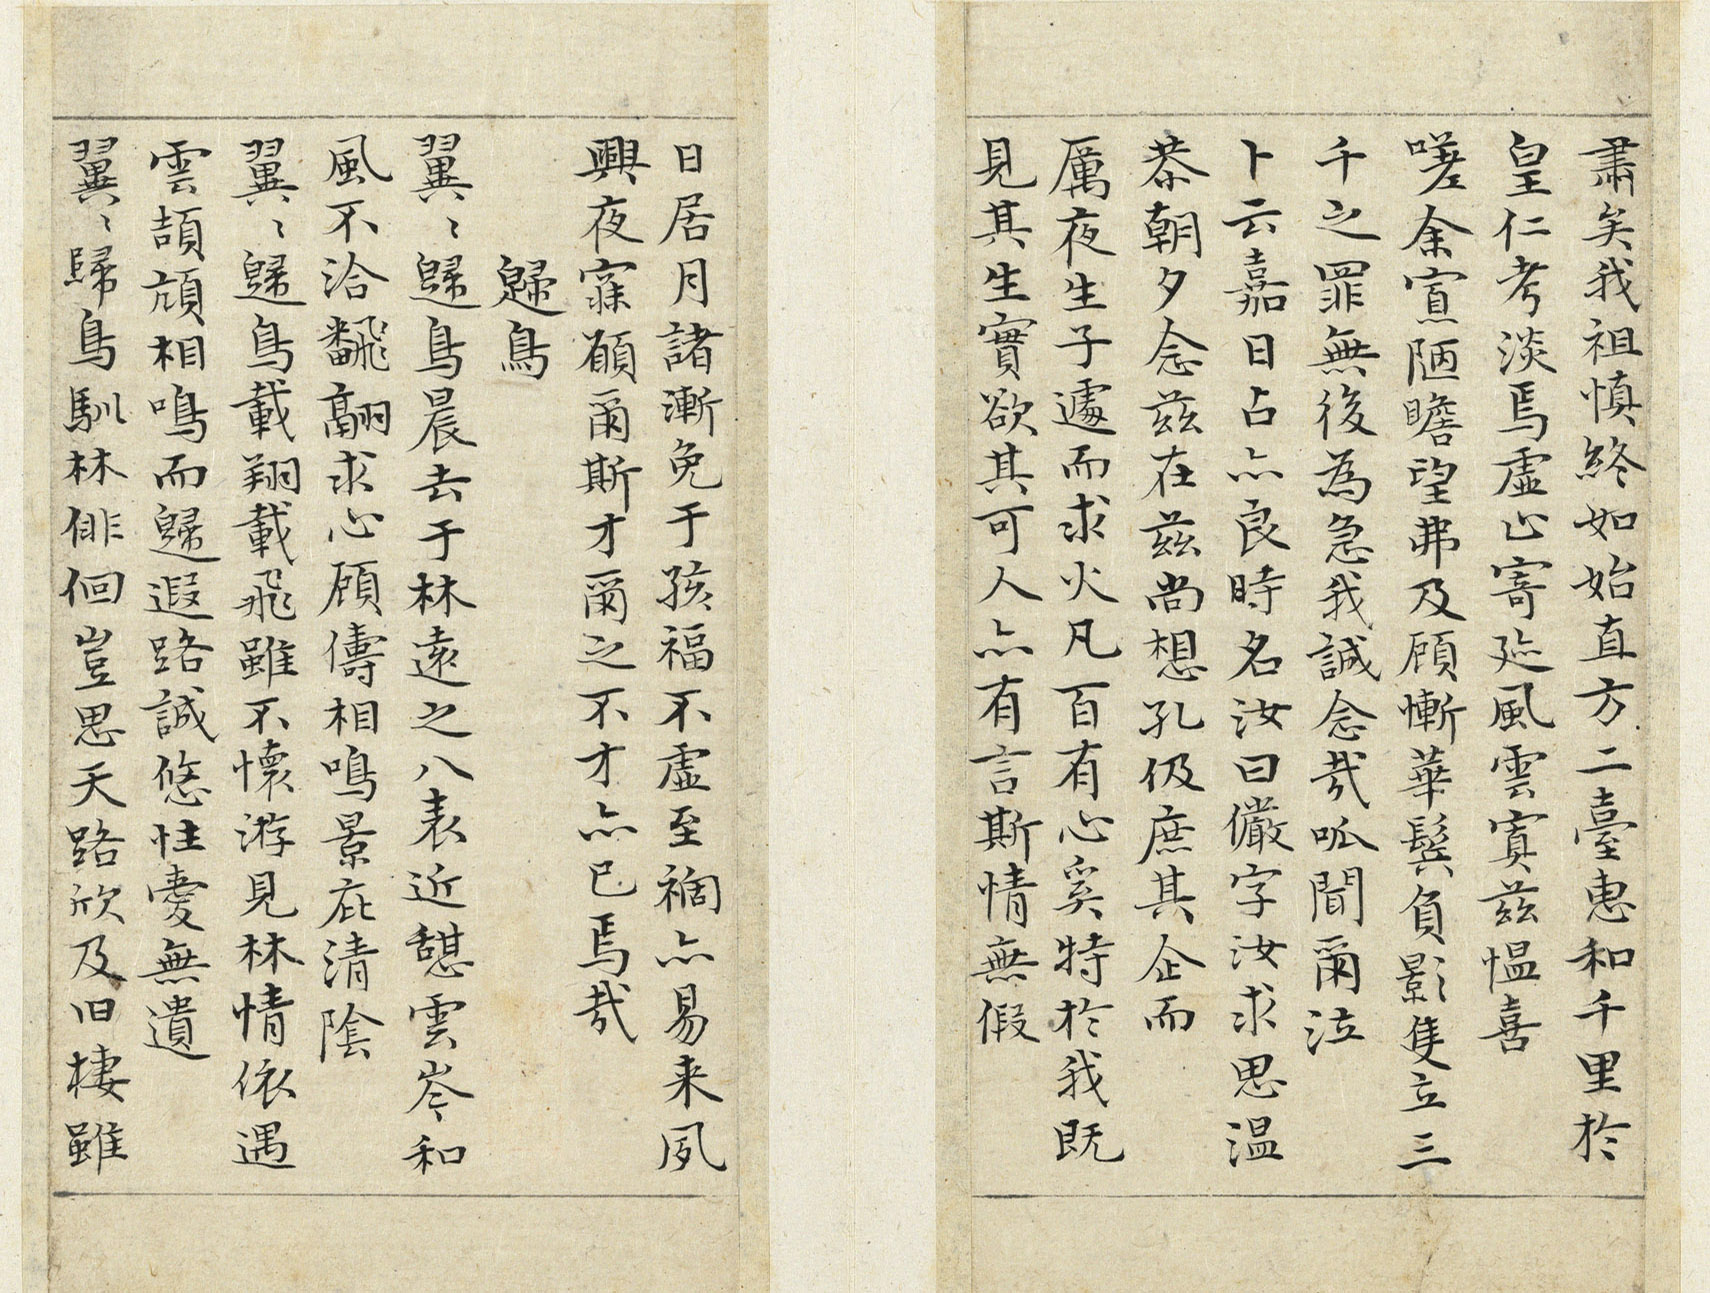 肅矣我祖慎終如始直方二臺惠和千里於
皇仁考淡焉虛心寄迹風雲寘茲愠喜
嗟余寡陋瞻望弗及顧慚華鬓負影隻立三
千之罪無後為急我誠念哉呱聞爾泣
卜云嘉日占亦良時名汝曰儼字汝求思温
恭朝夕念茲在茲尚想孔伋庶其企而
厲夜生子遽而求火凡百有心奚特於我既
見其生實欲其可人亦有言斯情無假
日居月諸漸免于孩福不虛至禍亦易来夙
興夜寐願爾斯才爾之不才亦已焉哉
歸鳥
翼〻歸鳥晨去于林遠之八表近憇雲岑和
風不洽飜翮求心顧儔相鳴景庇清陰
翼〻歸鳥載翔載飛雖不懷游見林情依遇
雲頡頏相鳴而歸遐路誠悠性愛無遺
翼〻歸鳥馴林俳佪豈思天路欣及旧棲雖